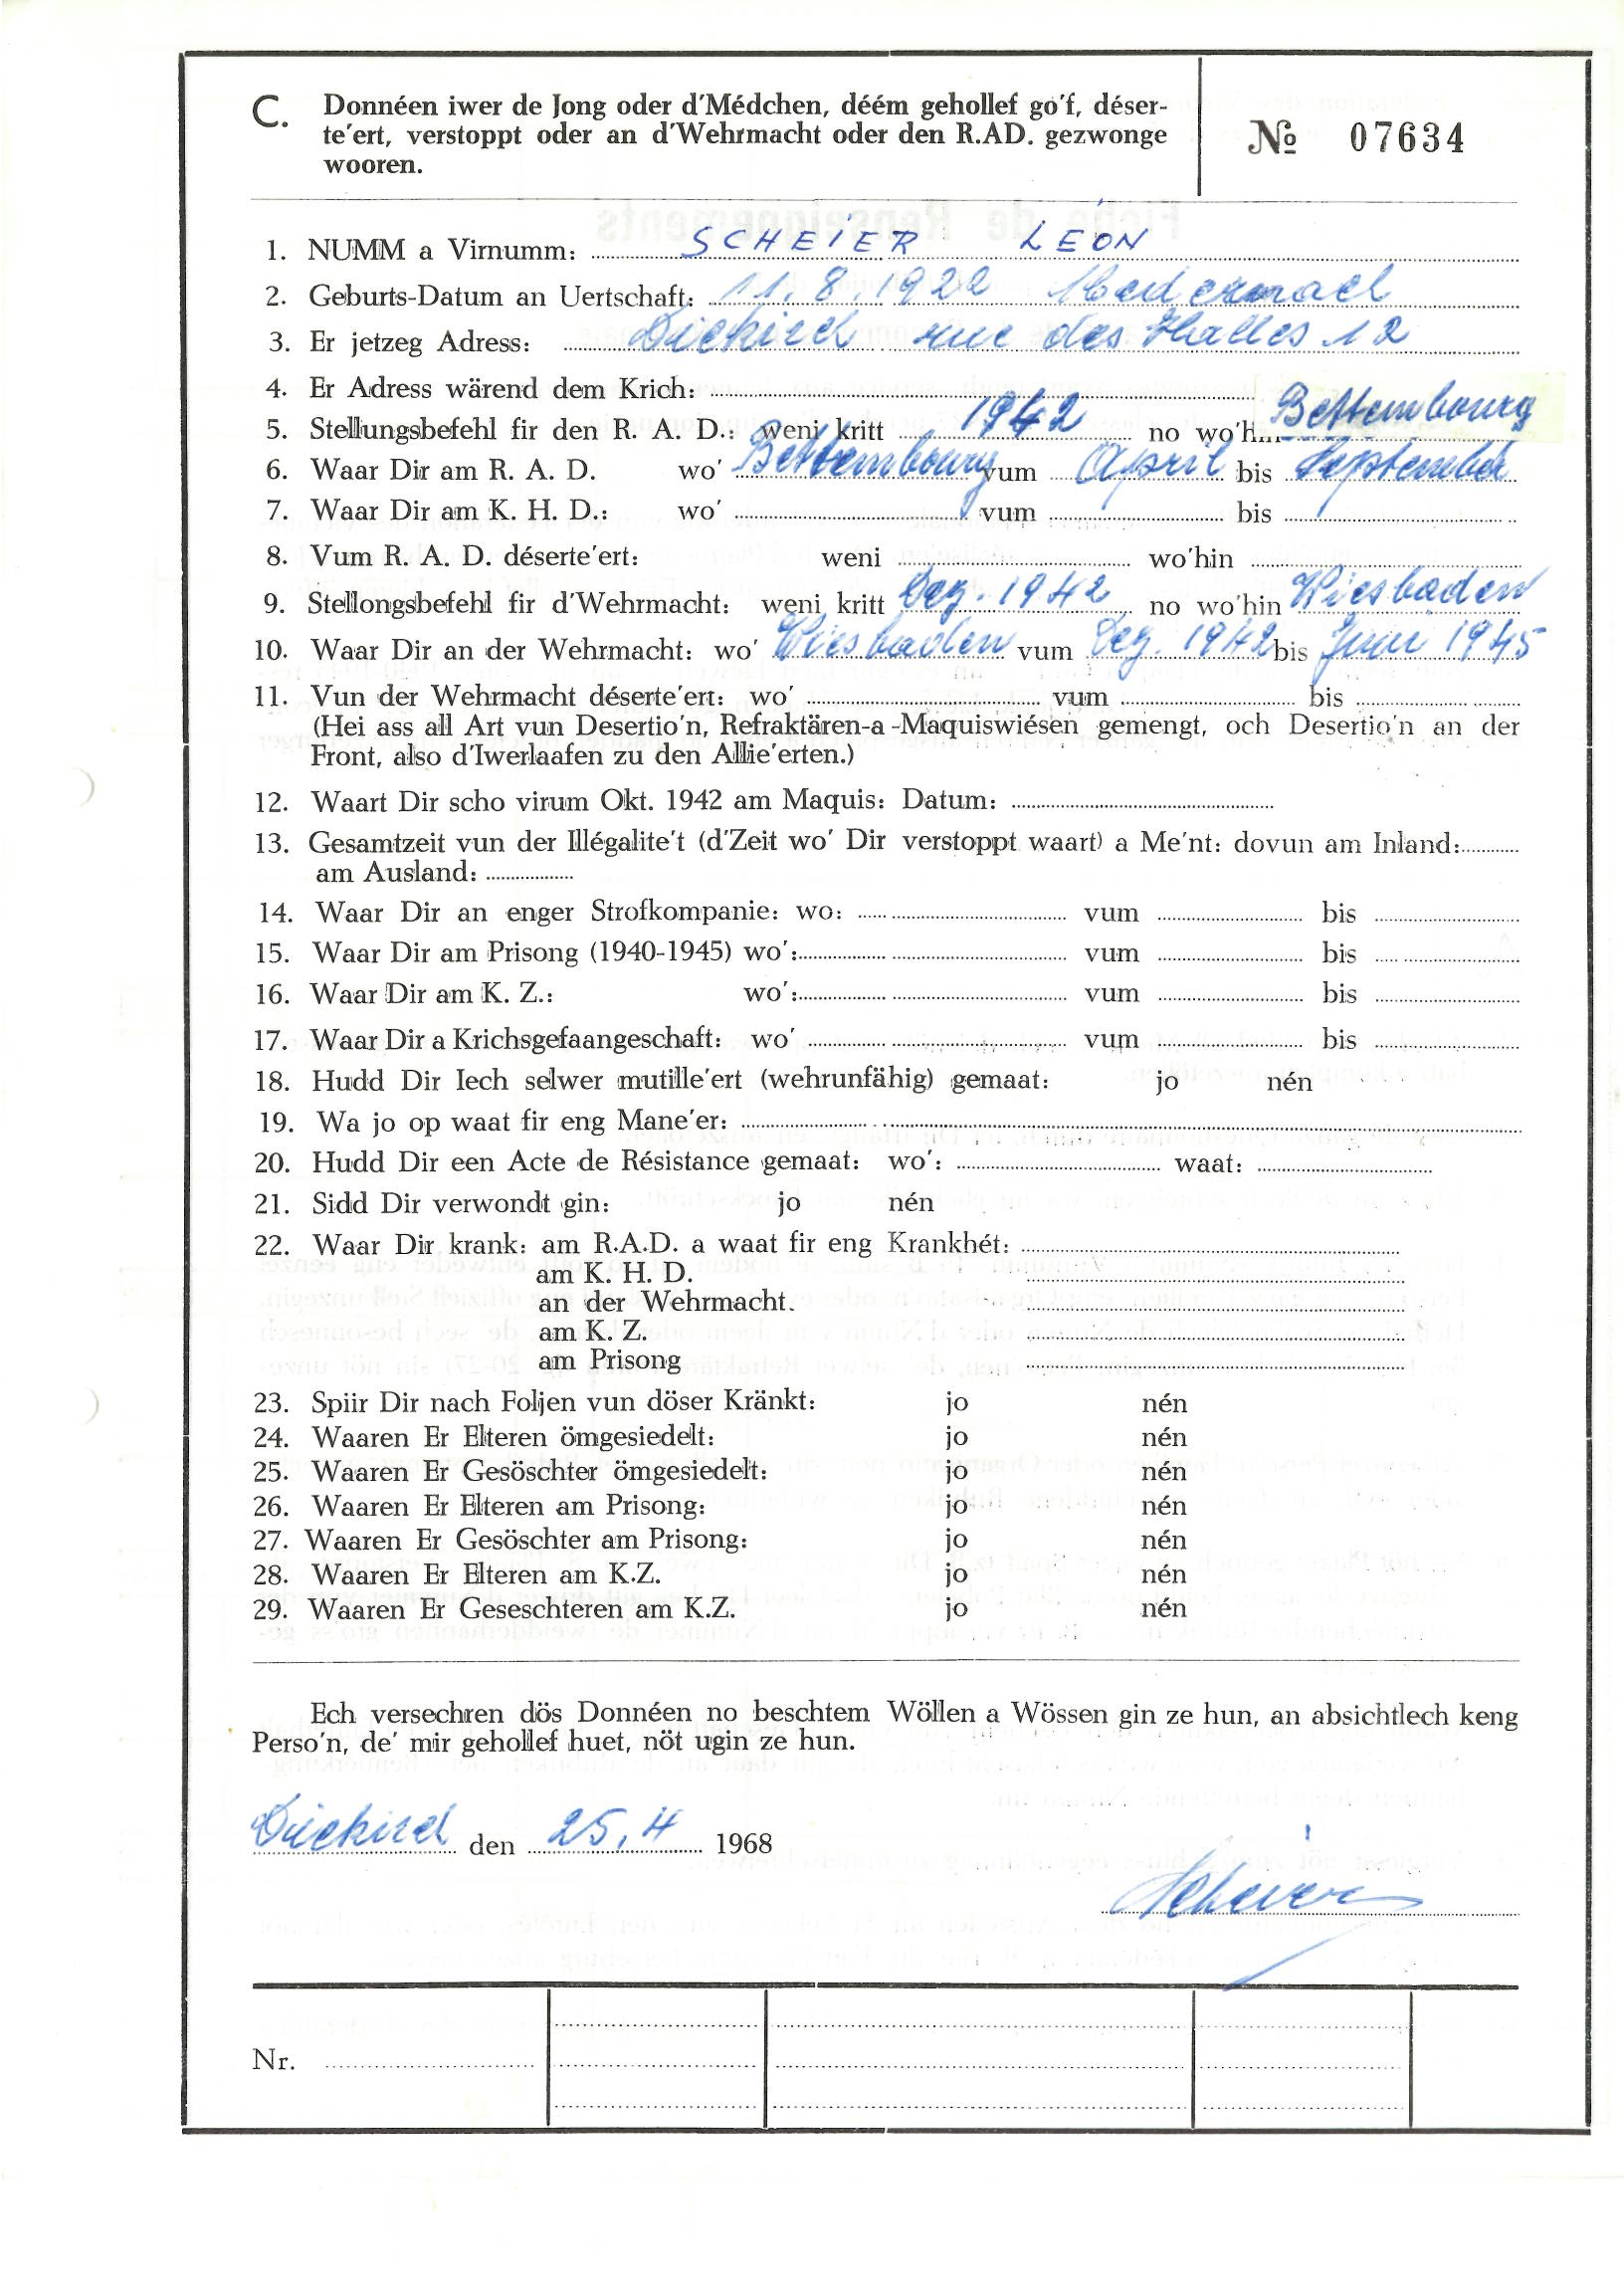 C. Donnéen iwer de Jong oder d'Médchen, déém gehollef go'f, déser-
te'ert, verstoppt oder an d'Wehrmacht oder den R.AD. gezwonge
wooren.
№ 07634
1. NUMM a Virnumm: SCHEIER LÉON
2. Geburts-Datum an Uertschaft: 11.8.1922 Medernach
3. Er jetzeg Adress: Diekirch rue des Halles 12
4. Er Adress wärend dem Krich:
5. Stellungsbefehl fir den R. A. D.: weni kritt 1942 no wo'hin Bettembourg
6. Waar Dir am R. A. D. wo' Bettembourg vum April bis September
7. Waar Dir am K. H. D.: wo' vum bis
8. Vum R. A. D. déserte'ert: weni wo'hin
9. Stellongsbefehl fir d'Wehrmacht: weni kritt Dez. 1942 no wo'hin Wiesbaden
10. Waar Dir an der Wehrmacht: wo' Wiesbaden vum Dez. 1942 bis Juni 1945
11. Vun der Wehrmacht déserte'ert: wo' vum bis
(Hei ass all Art vun Desertio'n, Refraktären-a-Maquiswiésen gemengt, och Desertio'n an der
Front, also d'Iwerlaafen zu den Allie'erten.)
12. Waart Dir scho virum Okt. 1942 am Maquis: Datum:
13. Gesamtzeit vun der Illégalite't (d'Zeit wo' Dir verstoppt waart) a Me'nt: dovun am Inland:
am Ausland:
14. Waar Dir an enger Strofkompanie: wo: vum bis
15. Waar Dir am Prisong (1940-1945) wo': vum bis
16. Waar Dir am K. Z.: wo': vum bis
17. Waar Dir a Krichsgefaangeschaft: wo' vum bis
18. Hudd Dir Iech selwer mutille'ert (wehrunfähig) gemaat: jo nén
19. Wa jo op waat fir eng Mane'er:
20. Hudd Dir een Acte de Résistance gemaat: wo': waat:
21. Sidd Dir verwondt gin: jo nén
22. Waar Dir krank: am R.A.D. a waat fir eng Krankhét:
am K. H. D.
an der Wehrmacht.
am K. Z.
am Prisong
23. Spiir Dir nach Foljen vun döser Kränkt: jo nén
24. Waaren Er Elteren ömgesiedelt: jo nén
25. Waaren Er Gesöschter ömgesiedelt: jo nén
26. Waaren Er Elteren am Prisong: jo nén
27. Waaren Er Gesöschter am Prisong: jo nén
28. Waaren Er Elteren am K.Z. jo nén
29. Waaren Er Geseschteren am K.Z. jo nén
Ech versechren dös Donnéen no beschtem Wöllen a Wössen gin ze hun, an absichtlech keng
Perso'n, de' mir gehollef huet, nöt ugin ze hun.
Diekirch den 25.4 1968
Scheier
Nr.